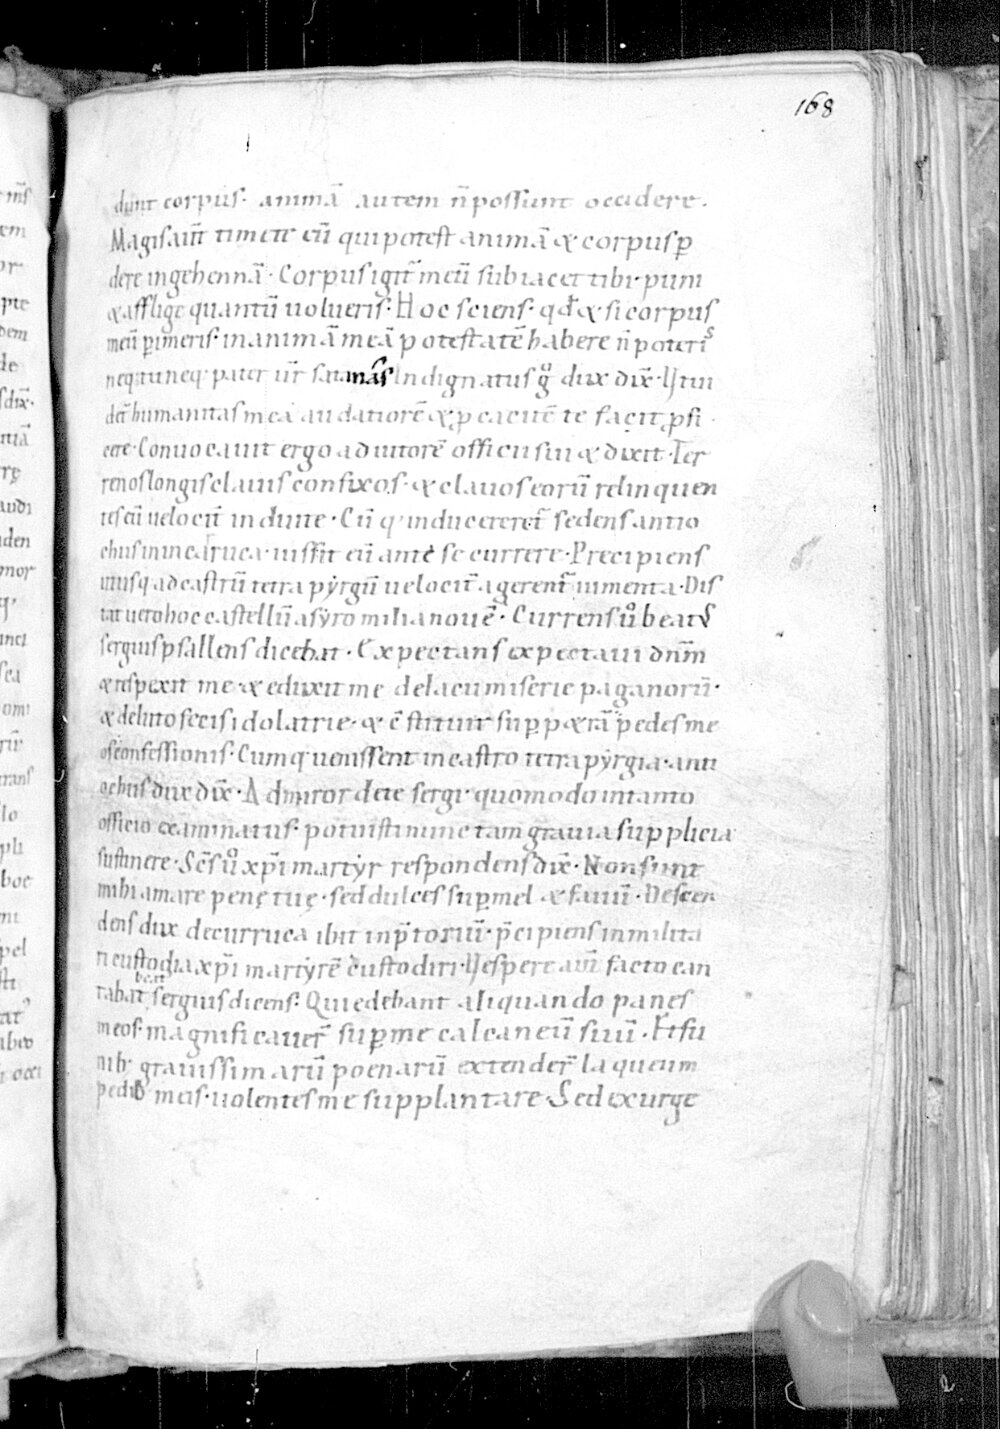 168
dunt corpus. animā autem n̄ possunt occidere.
Magis aut̄ timete eū qui potest animā & corpus p̱
dere in gehennā. Corpus igit̄ meū subiacet tibi. puni
& afflige quantū uolueris. Hoc sciens. qđ & si corpus
meū p̱imeris. in animā meā potestatē habere n̄ poteris
neq; tu neq; pater ur̄ satanas Indignatus g° dux dix̄. Ut ui
det̄ humanitas mea audatiorē & p̱cacuē te facit p̱fi
cere. Conuocauit ergo adiutorē officii sui & dixit. Fer
renos longis clauis confixos. & clauos eorū relinquen
tes eū uelocit̄ induite. Cū q; induceretet̄ sedens antio
chus in in carruca. iussit eū ante se currere. Precipiens
uuisq; ad castrū tetrapyrgiū uelocit̄ agerent̄ iumenta. Dis
tat uero hoc castellū a syro milia nouē. Currens u° beatꝰ
sergius psallens dicebat. Expectans expectaui dnm̄
& respexit me. & eduxit me de lacu miserie paganorū.
& de luto fecis idolatrie. & ē stituit sup̱ p&rā pedes me
os confessionis. Cumq; uenissent in castro tetrapyrgia. anti
ochus dux dix̄. Admiror de te sergi. quomodo in tanto
officio examinatus. potuisti nunc tam grauia supplicia
sustinere. Sc̄s u° xp̄i martyr respondens dix̄. Non sunt
mihi amare penę tuę. sed dulces sup̱ mel & fauū. Descen
dens dux de curruca ibit in p̄toriū. p̄cipiens in milita
ri custodia xp̄i martyrē custodiri. Uespere aut̄ facto can
tabat beat̄ sergius dicens. Qui edebant aliquando panes
meos. magnificauer̄ sup̱ me calcaneū suū. Et fu
nib; grauissimarū poenarū extender̄ laqueum
pedib; meis. uolentes me supplantare. Sed exurge